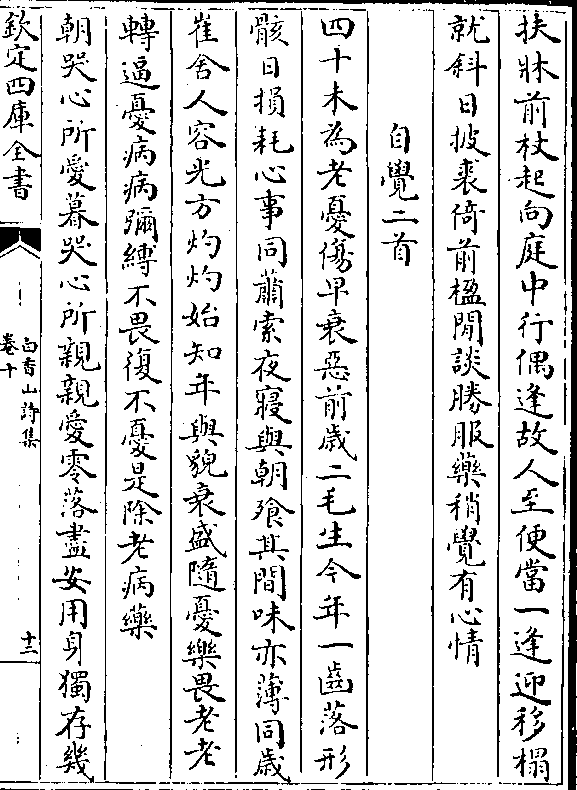 扶牀前杖起向庭中行偶逢故人至便當一逢迎移榻
就斜日披裘倚前楹閒談勝服藥稍覺有心情
自覺二首
四十未為老憂傷早衰惡前歲二毛生今年一齒落形
骸日損耗心事同蕭索夜寢與朝飡其間味亦薄同歲
崔舍人容光方灼灼始知年與貌衰盛隨憂樂畏老老
轉逼憂病病彌縛不畏復不憂是除老病藥
朝哭心所愛暮哭心所親親愛零落盡安用身獨存幾
欽定四庫全書
白香山詩集
卷十
十三